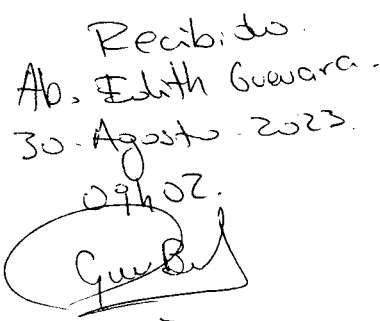 Recibido.
Ab. Edith Guevara.
30. Agosto. 2023.
09h02.